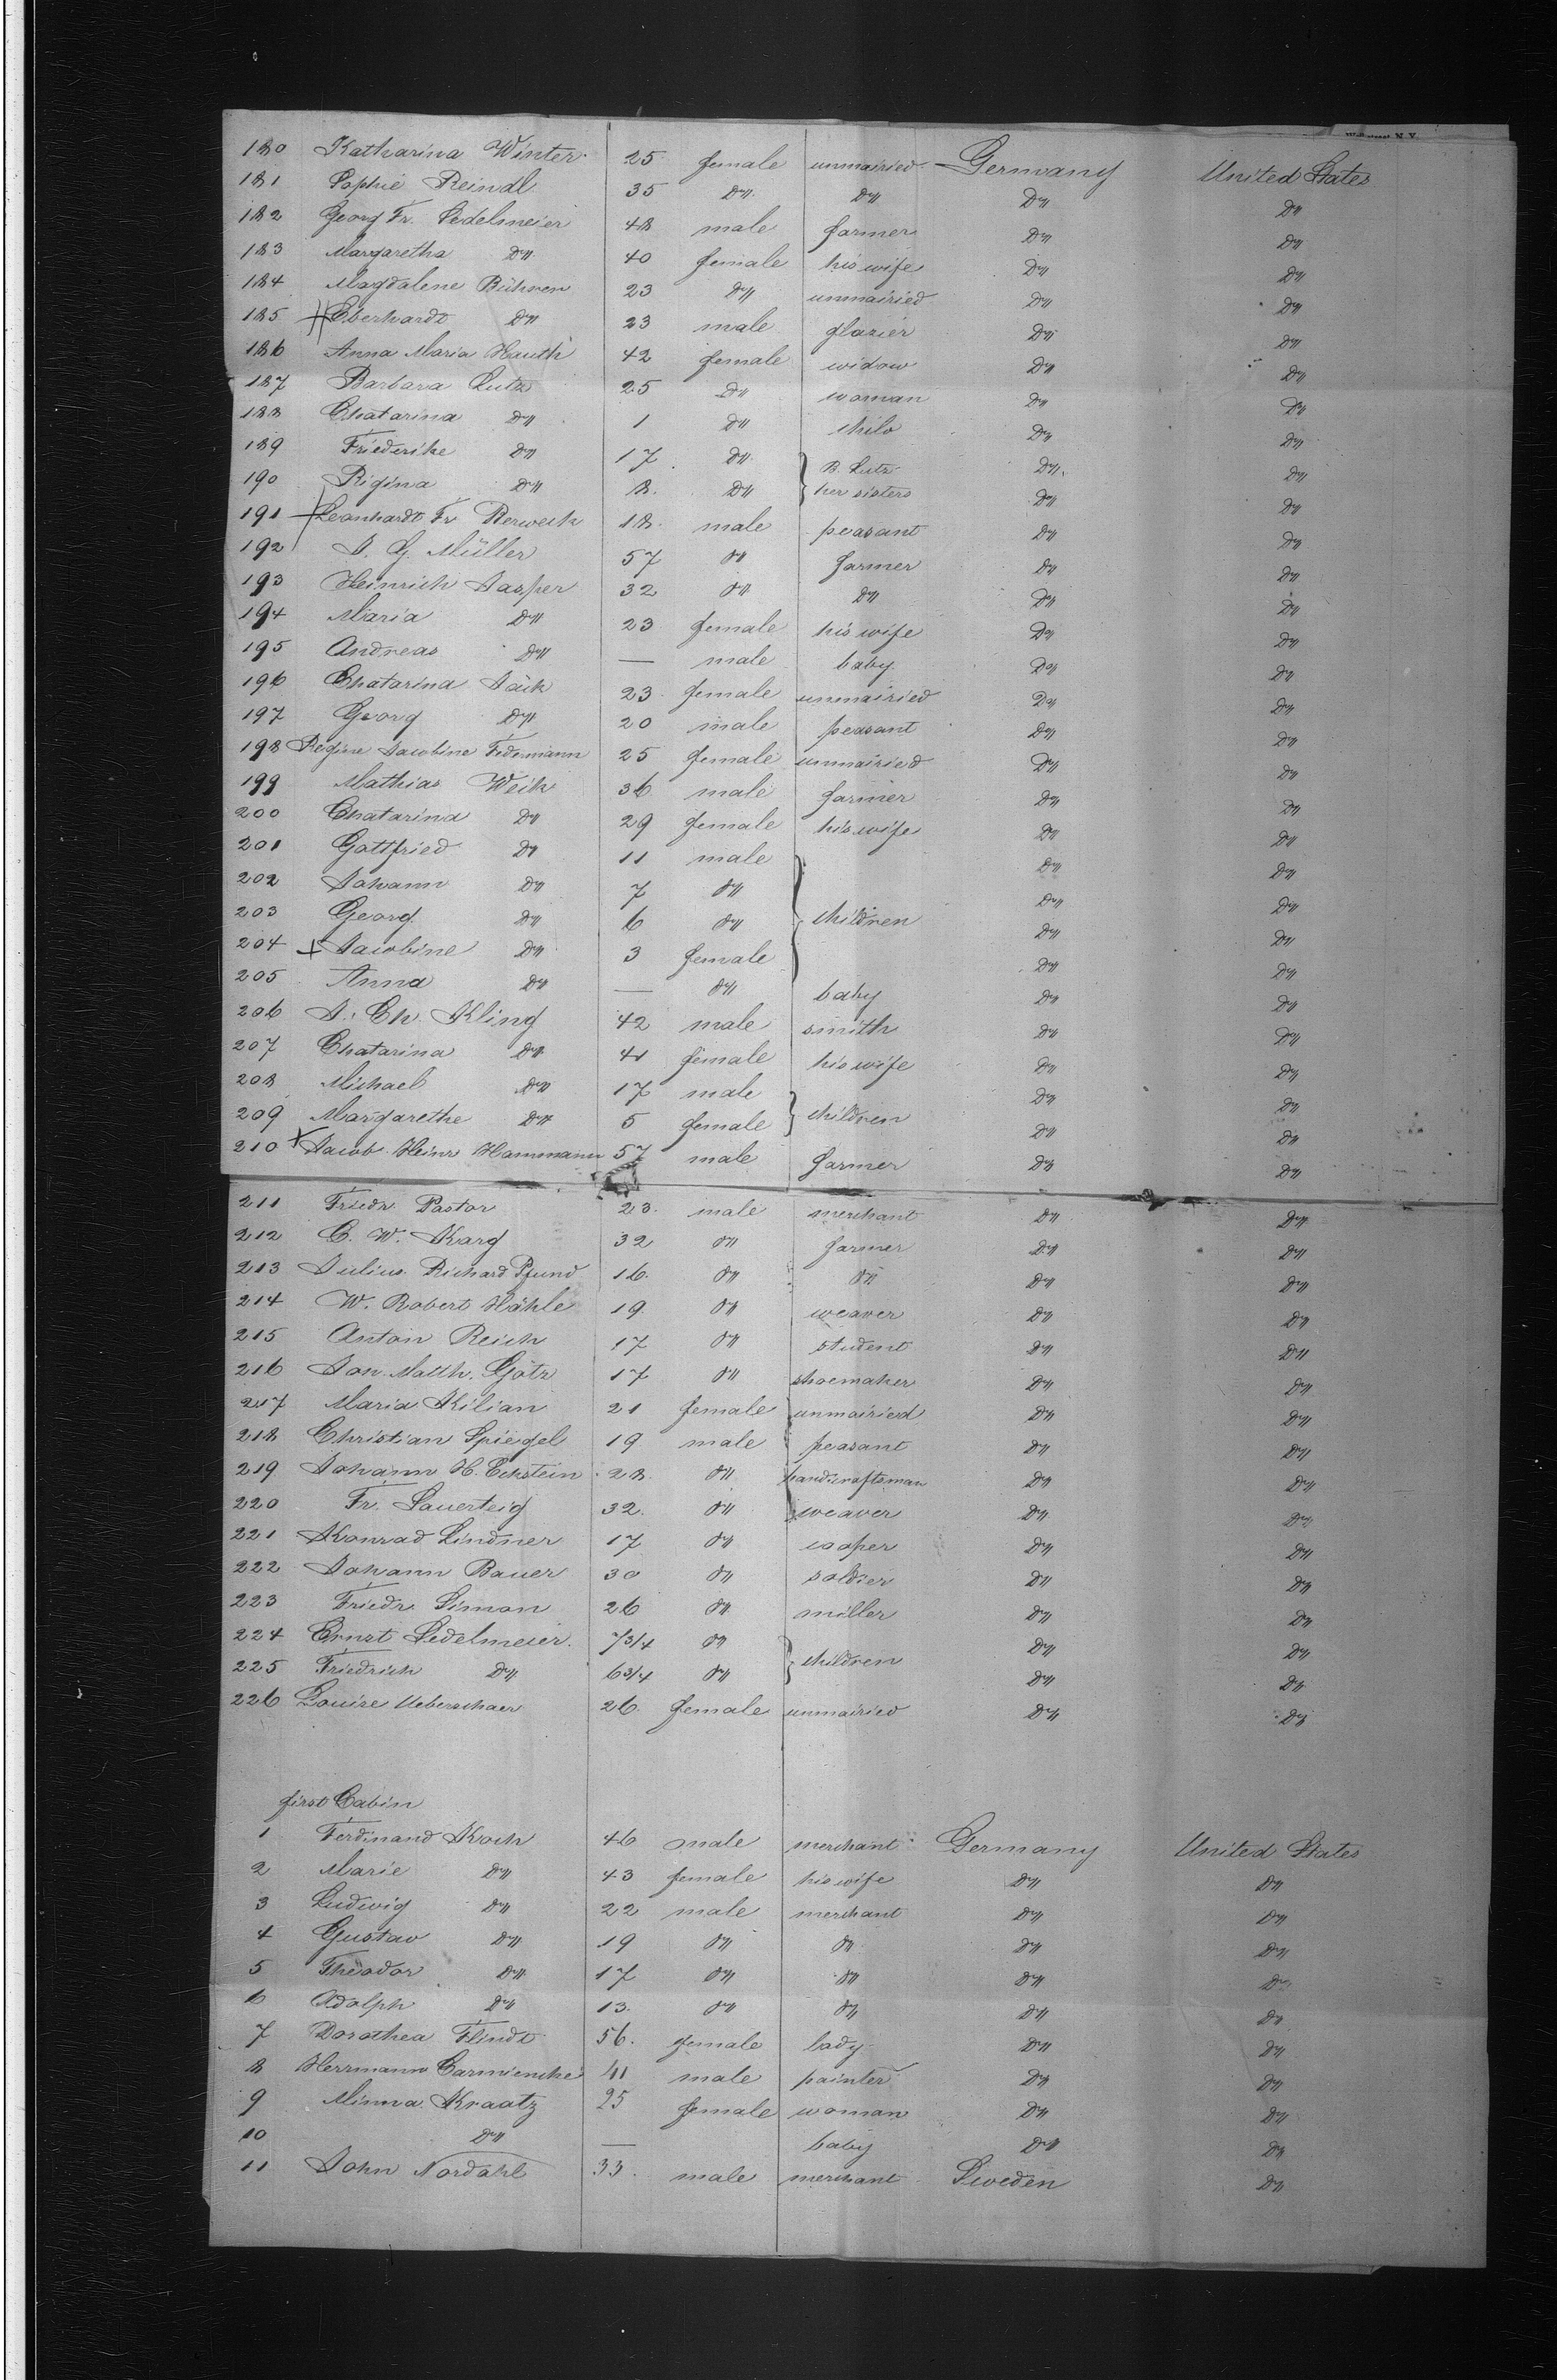 180 Katharina Winter 25 female unmairied Germany United States
181 Sophie Reindl 35 do do do do
182 Georg Fr. Sedelmeier 48 male farmer do do
183 Margaretha do 40 female his wife do do
184 Magdalene Bühren 23 do unmairied do do
185 Eberhardt do 23 male glazier do do
186 Anna Maria Hauth 42 female widow do do
187 Barbara Lutz 25 do woman do do
188 Chatarina do 1 do child do do
189 Friederike do 17 do B. Lutz do do
190 Rigina do 8. do her sisters do do
191 Leonhardt Fr. 18. male peasant do do
192 J. G. Müller 57 do farmer do do
193 Heinrich Jasper 32 do do do do
194 Maria do 23 female his wife do do
195 Andreas do — male baby do do
196 Chatarina Jäck 23 female unmairied do do
197 Georg do 20 male peasant do do
198 Regine Jacobine Federmann 25 female unmairied do do
199 Mathias Weik 36 male farmer do do
200 Chatarina do 29 female his wife do do
201 Gottfried do 11 male do do
202 Johann do 7 do do do
203 Georg do 6 do children do do
204 Jacobine do 3 female do do
205 Anna do — do baby do do
206 J. Ch. Kling 42 male smith do do
207 Chatarina do 41 female his wife do do
208 Michael do 17 male do do
209 Margarethe do 5 female children do do
210 Jacob Heinr Hammann 57 male farmer do do
211 Friedr Pastor 23. male merchant do do
212 C. W. Karg 32 do farmer do do
213 Julius Richard Pfund 16. do do do do
214 W. Robert Hähle 19. do weaver do do
215 Anton Reich 17 do student do do
216 Jon. Matth. Götz 17 do shoemaker do do
217 Maria Kilian 21 female unmairied do do
218 Christian Spiegel 19 male peasant do do
219 Johann H. Eckstein 28. do handicraftsman do do
220 Fr. Sauerteig 32. do weaver do do
221 Konrad Lindner 17 do cooper do do
222 Johann Bauer 30 do soldier do do
223 Friedr. Simon 26 do miller do do
224 Ernst Sedelmeier. 7 3/4 do do do
225 Friedrich do 6 3/4 do children do do
226 Louise Ueberschaer 26. female unmairied do do
first Cabin
1 Ferdinand Koch 46 male merchant Germany United States
2 Marie do 43 female his wife do do
3 Ludwig do 22 male merchant do do
4 Gustav do 19 do do do do
5 Theodor do 17 do do do do
6 Adolph do 13. do do do do
7 Dorothea Flindt 56. female lady do do
8 Herrmann Carmiencke 41 male painter do do
9 Minna Kraatz 25 female woman do do
10 do — baby do do
11 John Nordahl 33. male merchant Sweden do